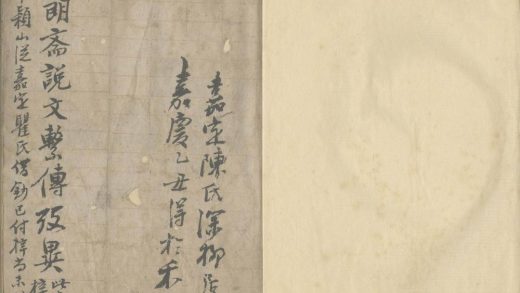 嘉定陳氏深柳居
嘉慶乙丑得於禾
朗斋說文繫傳攷異
山從嘉定瞿氏借鈔已付梓尚未